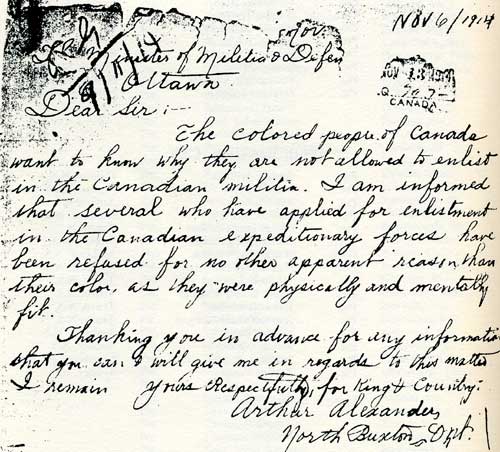 Nov 6/1914
Minister of Militia & Defen
Ottawa
Dear Sir:-
CANADA
The colored people of Canada
want to know why they are not allowed to enlist
in the Canadian militia. I am informed
that several who have applied for enlistment
in the Canadian expeditionary forces have
been refused for no other apparent reason than
their color, as they were physically and mentally
fit.
Thanking you in advance for any informatio
that you can & will give me in regards to this matter
I remain yours respectfully, for King & Country.
Arthur Alexander
North Buxton, Ont.